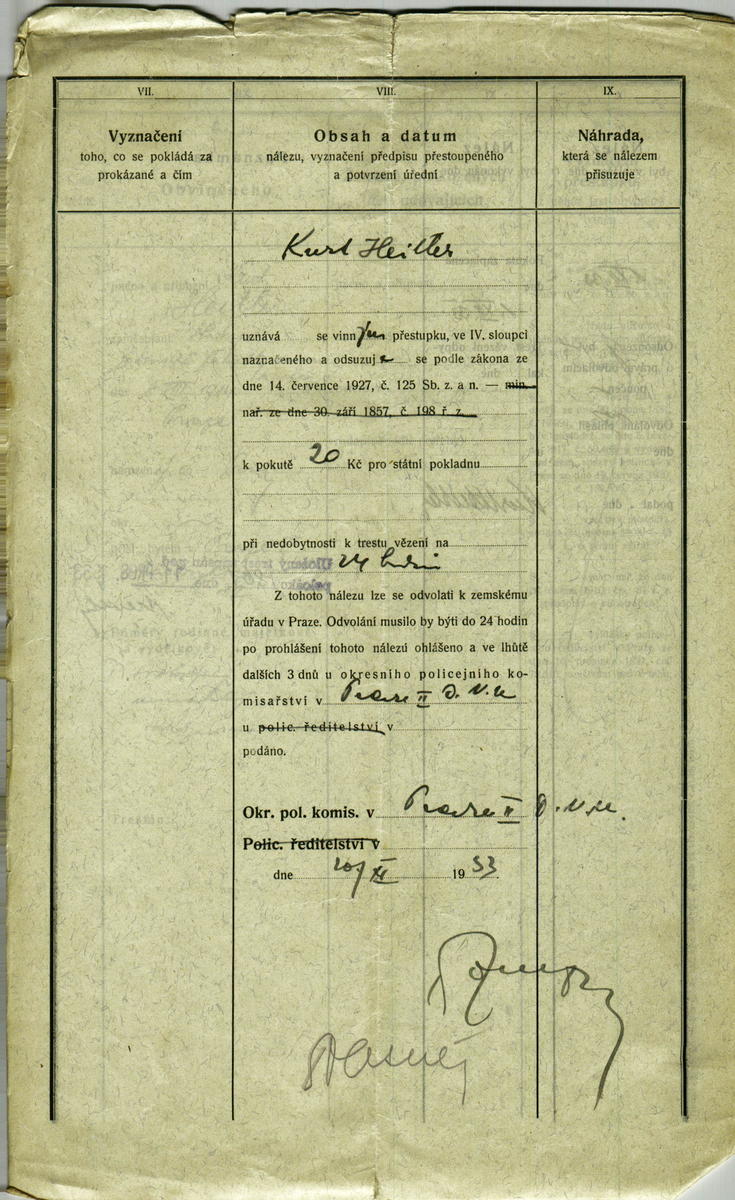 VII.
Vyznačení
toho, co se pokládá za
prokázané a čím
VIII.
Obsah a datum
nálezu, vyznačení předpisu přestoupeného
a potvrzení úřední
IX.
Náhrada,
která se nálezem
přisuzuje
Kurt Heitler
uznává se vinným přestupku, ve IV. sloupci
naznačeného a odsuzuje se podle zákona ze
dne 14. července 1927, č. 125 Sb. z. a n. — min.
nař. ze dne 30. září 1857, č. 198 ř. z.
k pokutě 20 Kč pro státní pokladnu
při nedobytnosti k trestu vězení na
24 hodin
Z tohoto nálezu lze se odvolati k zemskému
úřadu v Praze. Odvolání musilo by býti do 24 hodin
po prohlášení tohoto nálezú ohlášeno a ve lhůtě
dalších 3 dnů u okresního policejního ko-
misařství v Praze II
u polic. ředitelství v
podáno.
Okr. pol. komis. v Praze II
Polic. ředitelství v
dne 20/XI 1933.